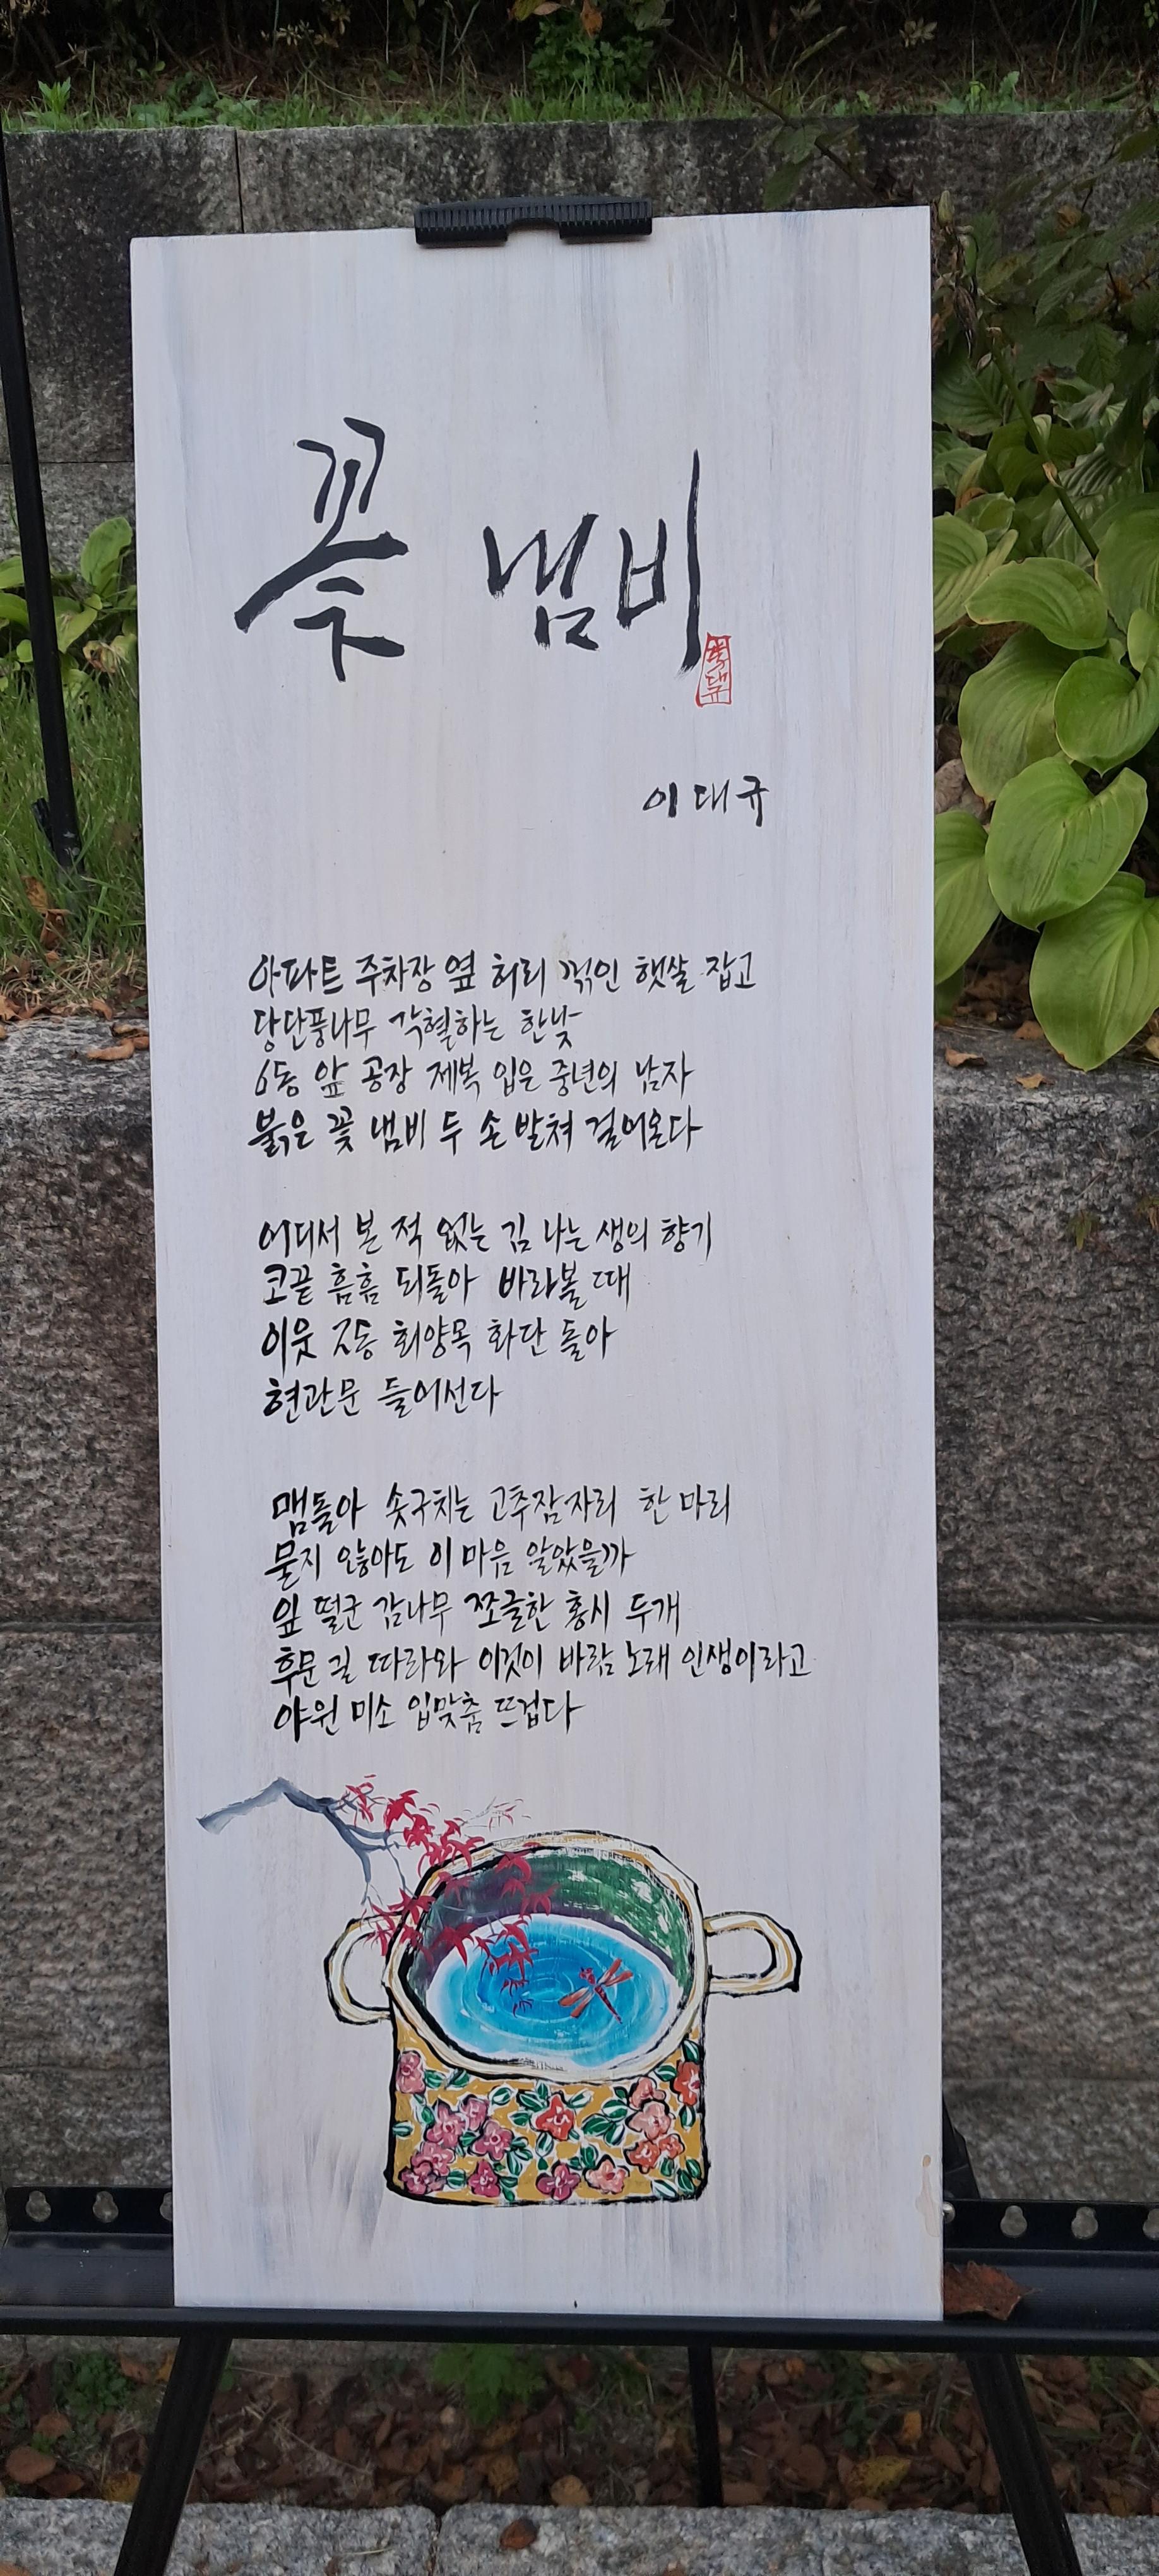 꽃 냄비
이대규
아파트 주차장 옆 허리 꺾인 햇살 잡고
당단풍나무 각혈하는 한낮
6동 앞 공장 제복 입은 중년의 남자
붉은 꽃 냄비 두 손 받쳐 걸어온다
어디서 본 적 없는 김 나는 생의 향기
코끝 흠흠 되돌아 바라볼 때
이웃 7동 회양목 화단 돌아
현관문 들어선다
맴돌아 솟구치는 고추잠자리 한 마리
묻지 않아도 이 마음 알았을까
잎 떨군 감나무 쪼글한 홍시 두개
후문 길 따라와 이것이 바람 노래 인생이라고
야윈 미소 입맞춤 뜨겁다